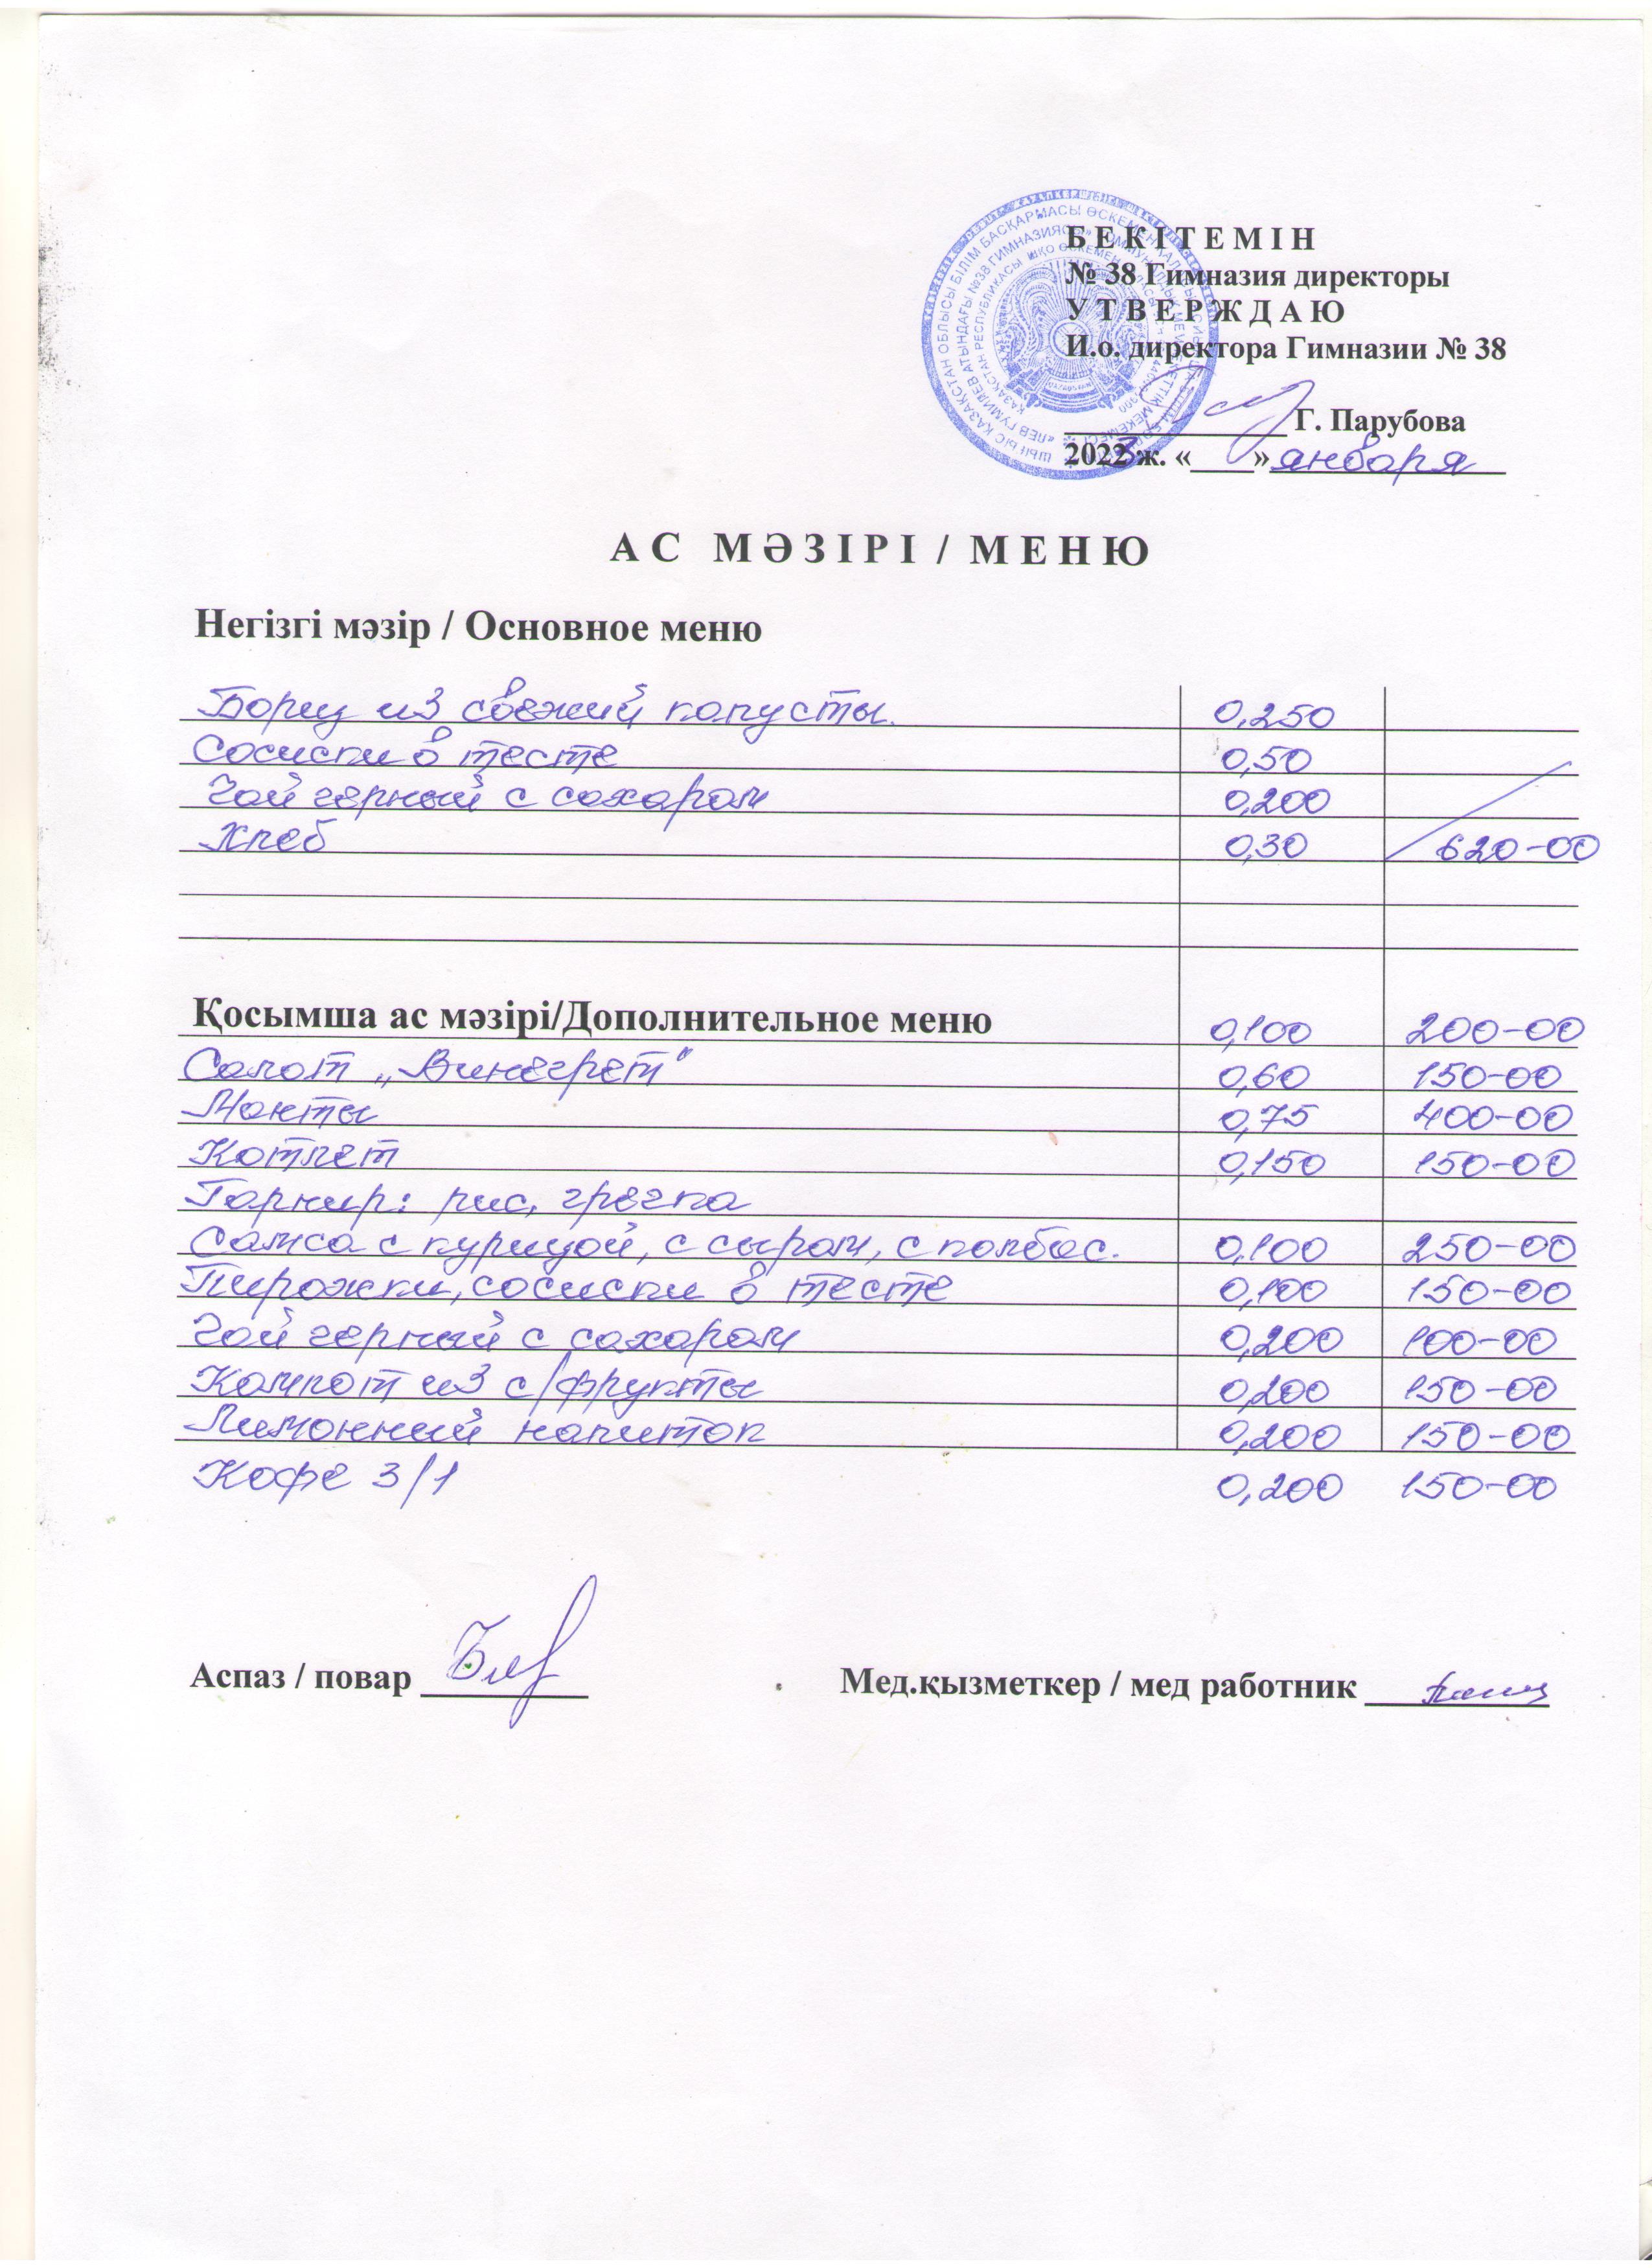 БЕКІТЕМІН
№ 38 Гимназия директоры
УТВЕРЖДАЮ
И.о. директора Гимназии № 38
Г. Парубова
2023 ж. «____» января
АС МӘЗІРІ / МЕНЮ
Негізгі мәзір / Основное меню
Борщ из свежий капусты. 0,250
Сосиски в тесте 0,50
Чай черный с сахаром 0,200
Хлеб 0,30 620-00
Қосымша ас мәзірі/Дополнительное меню 0,100 200-00
Салат „Винегрет" 0,60 150-00
Манты 0,75 400-00
Котлет 0,150 150-00
Гарнир: рис, гречка
Самса с курицой, с сыром, с колбас. 0,100 250-00
Пирожки, сосиски в тесте 0,100 150-00
Чай черный с сахаром 0,200 100-00
Компот из с/фрукты 0,200 150-00
Лимонний напиток 0,200 150-00
Кофе 3/1 0,200 150-00
Аспаз / повар
Мед.қызметкер / мед работник